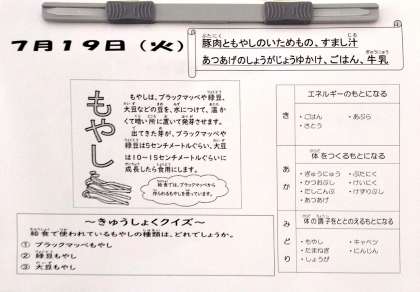 7月19日（火）
豚肉ともやしのいためもの、すまし汁
あつあげのしょうがじょうゆかけ、ごはん、牛乳
もやし
もやしは、ブラックマッペや緑豆、
大豆などの豆を、水につけて、温か
くて暗い所に置いて発芽させます。
出てきた芽が、ブラックマッペや
緑豆は5センチメートルぐらい、大豆
は10～15センチメートルぐらいに
成長したら食用にします。
給食では、ブラックマッペから
作られるもやしを使っています。
～きゅうしょくクイズ～
給食で使われているもやしの種類は、どれでしょうか。
① ブラックマッペもやし
② 緑豆もやし
③ 大豆もやし
き
エネルギーのもとになる
・ごはん ・あぶら
・さとう
あか
体をつくるもとになる
・ぎゅうにゅう ・ぶたにく
・かつおぶし ・けいにく
・だしこんぶ ・けずりぶし
・あつあげ
みどり
体の調子をととのえるもとになる
・もやし ・キャベツ
・たまねぎ ・にんじん
・しょうが